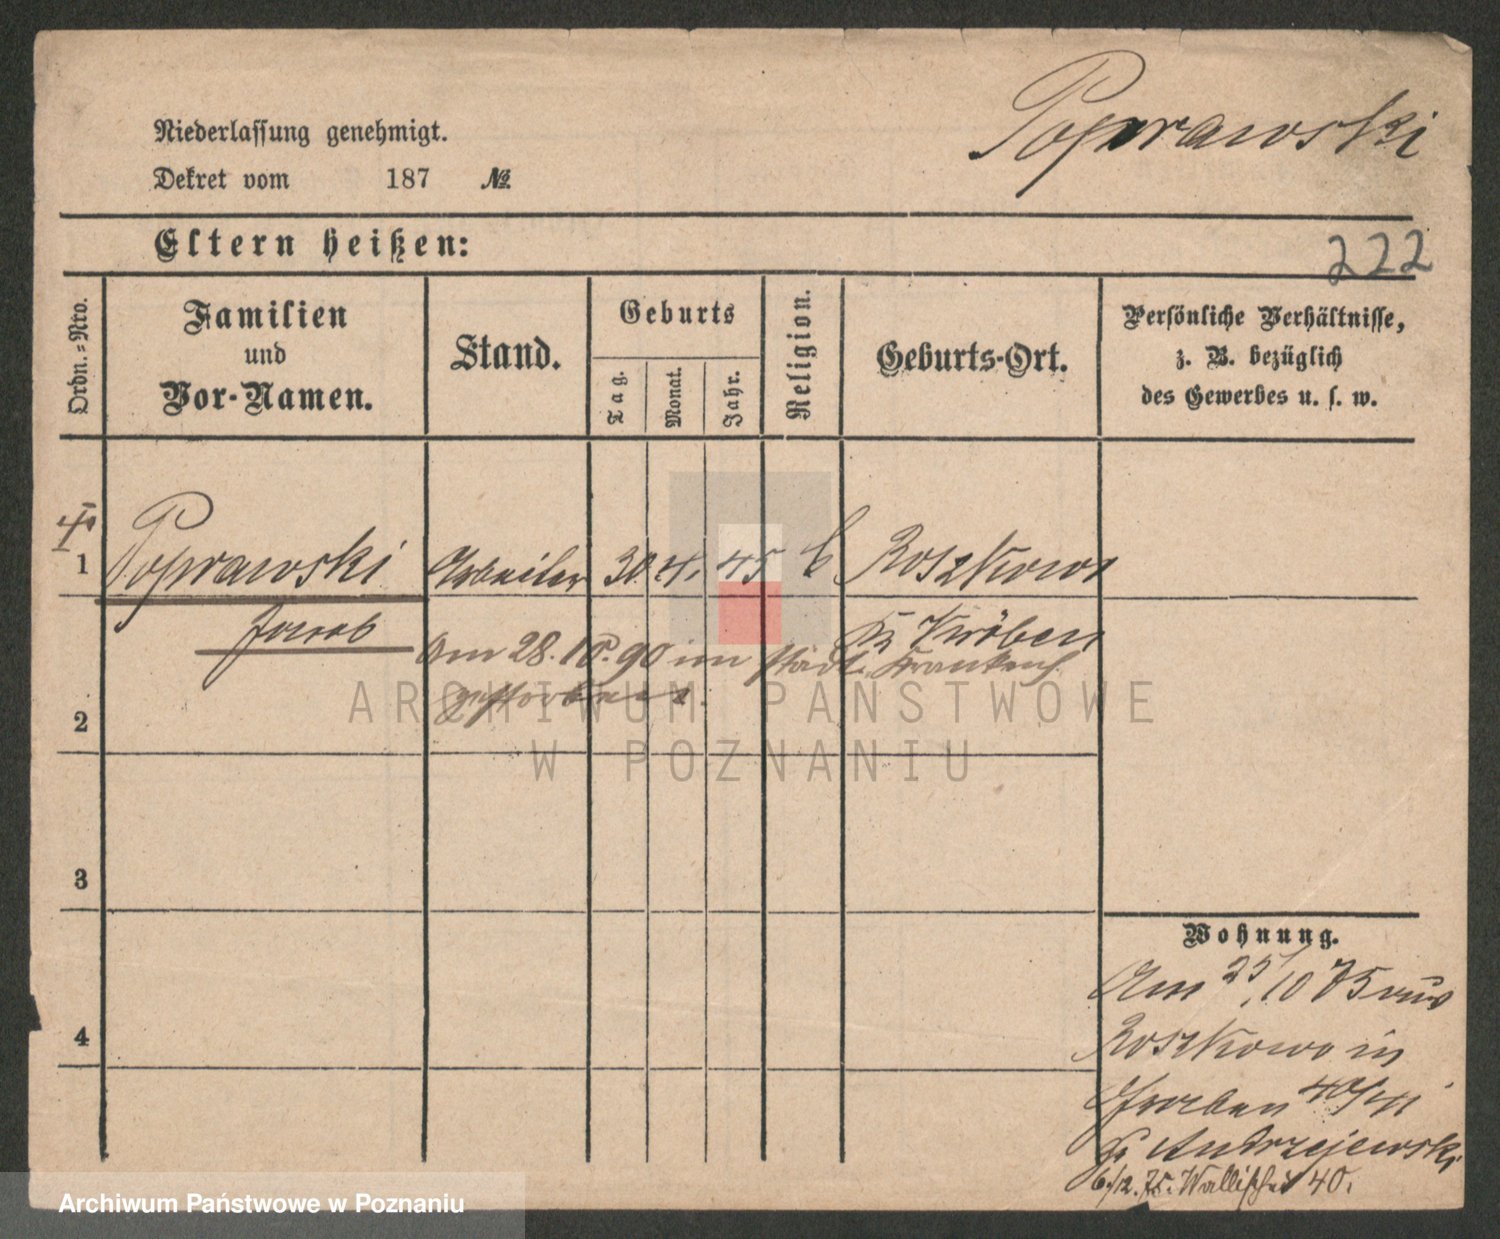 Poprawski
Niederlassung genehmigt.
Dekret vom 187 №
Eltern heißen:
222
Ordn.-Nro.
Familien
und
Vor-Namen.
Stand.
Geburts
Tag.
Monat.
Jahr.
Religion.
Geburts-Ort.
Persönliche Verhältnisse,
z. B. bezüglich
des Gewerbes u. s. w.
1 Poprawski Arbeiter 30. 4. 45 Roszkowo
Jacob
Kröben
am 28.10.90 im städt. Krankenh.
gestorben.
2
3
4
ARCHIWUM PAŃSTWOWE
W POZNANIU
Wohnung.
Am 25/10 75 aus
Roszkowo in
Graben 40/41
Andrzejewski
6/12. 75. Wallischei 40.
Archiwum Państwowe w Poznaniu